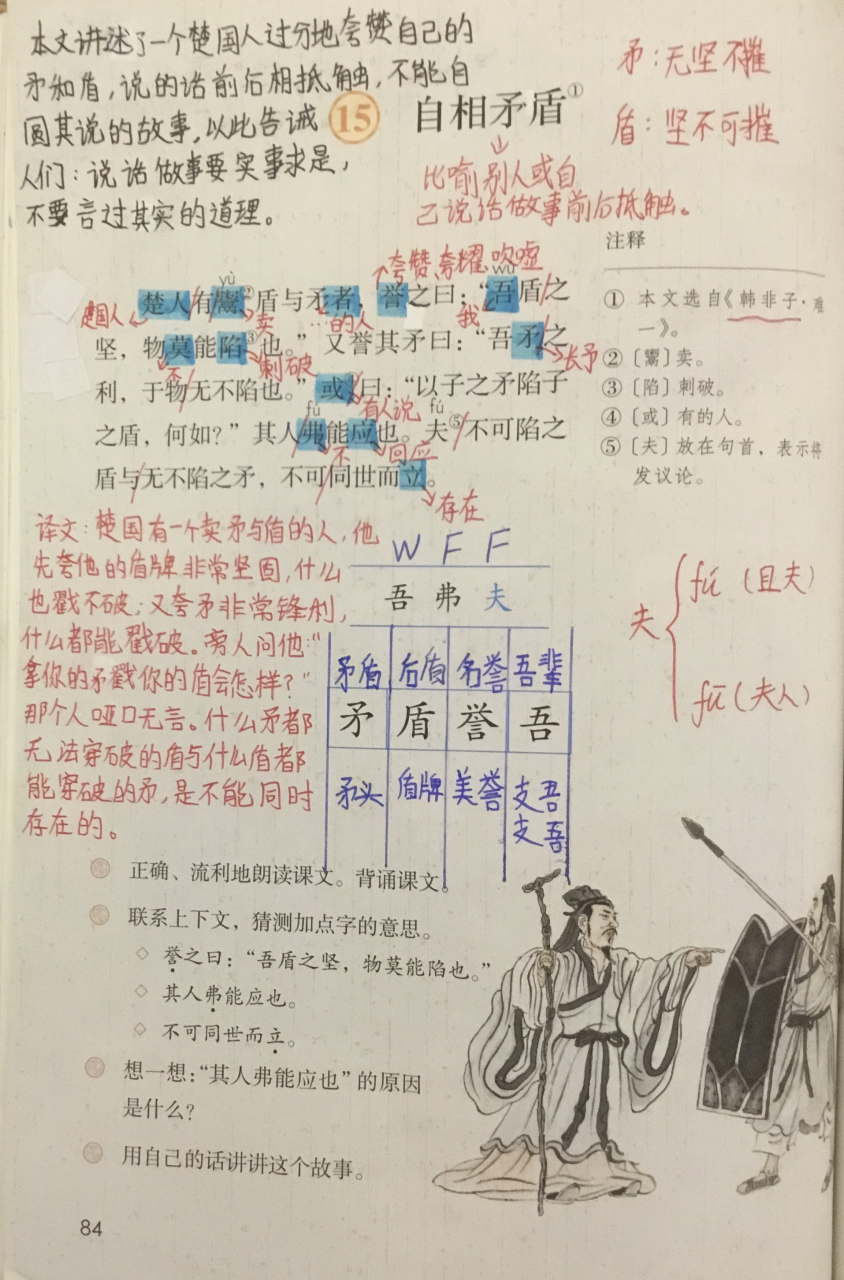 本文讲述了一个楚国人过分地夸赞自己的
矛和盾,说的话前后相抵触,不能自
圆其说的故事,以此告诫
人们:说话做事要实事求是,
不要言过其实的道理。
15 自相矛盾①
矛:无坚不摧
盾:坚不可摧
比喻别人或自
己说话做事前后抵触。
注释
夸赞,夸耀,吹嘘
yù wú
楚人有鬻②盾与矛者,誉之曰:“吾盾之
楚国人 卖 的人 我
坚,物莫能陷③也。”又誉其矛曰:“吾矛之
不 刺破 长矛
利,于物无不陷也。”或曰:“以子之矛陷子
有人说
fú fú
之盾,何如?”其人弗能应也。夫⑤不可陷之
不 回应
盾与无不陷之矛,不可同世而立。
存在
① 本文选自《韩非子·难
一》。
②〔鬻〕卖。
③〔陷〕刺破。
④〔或〕有的人。
⑤〔夫〕放在句首,表示将
发议论。
译文:楚国有一个卖矛与盾的人,他
先夸他的盾牌非常坚固,什么
也戳不破;又夸矛非常锋利,
什么都能戳破。旁人问他:“
拿你的矛戳你的盾会怎样?”
那个人哑口无言。什么矛都
无法穿破的盾与什么盾都
能穿破的矛,是不能同时
存在的。
W F F
吾 弗 夫
矛盾 后盾 名誉 吾辈
矛 盾 誉 吾
矛头 盾牌 美誉 支吾
支吾
夫
fú(且夫)
fū(夫人)
正确、流利地朗读课文。背诵课文。
联系上下文,猜测加点字的意思。
◇ 誉之曰:“吾盾之坚,物莫能陷也。”
◇ 其人弗能应也。
◇ 不可同世而立。
想一想:“其人弗能应也”的原因
是什么?
用自己的话讲讲这个故事。
84